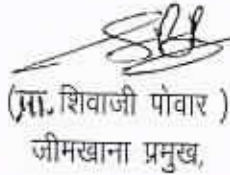 (प्रा. शिवाजी पोवार )
जीमखाना प्रमुख,